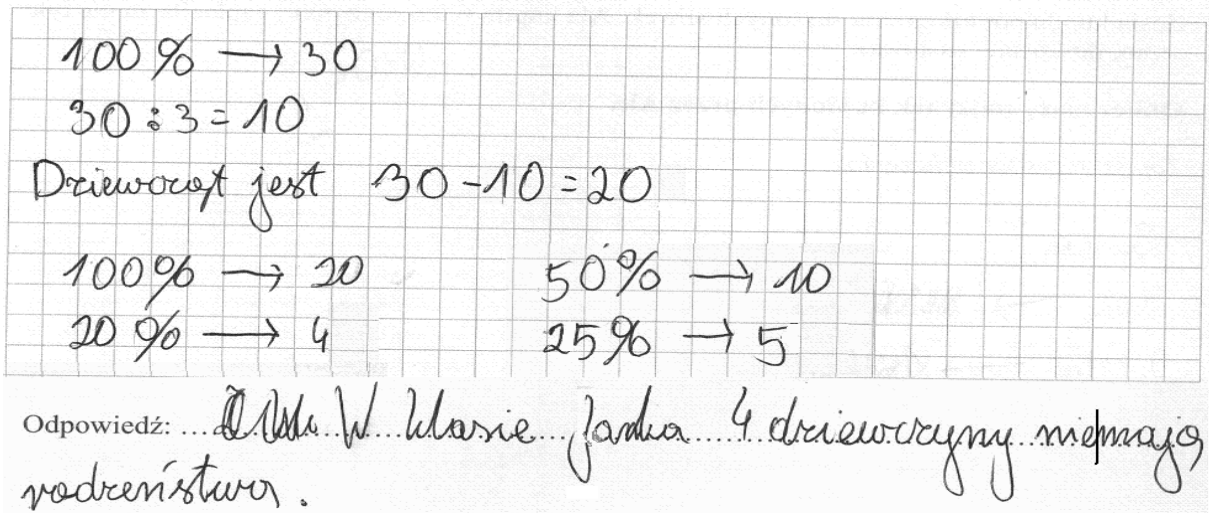 100% → 30
30 : 3 = 10
Dziewcząt jest 30 - 10 = 20
100% → 20 50% → 10
20% → 4 25% → 5
Odpowiedź: W klasie Janka 4 dziewczyny nie mają
rodzeństwa.